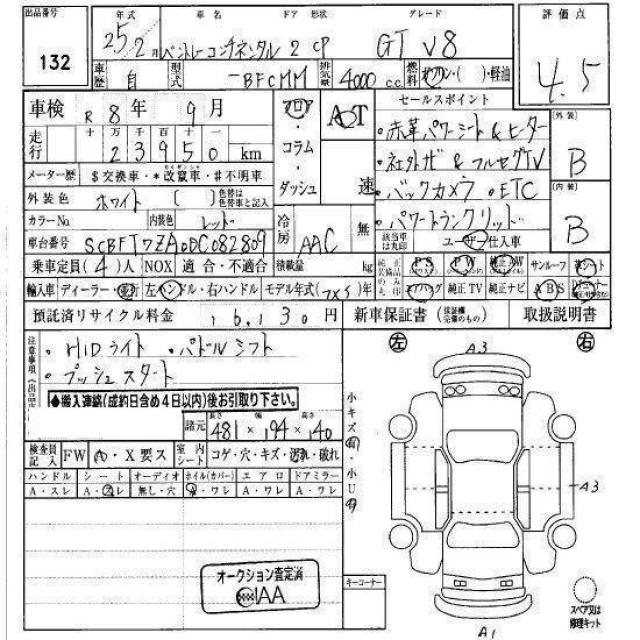 出品番号 年式 車名 ドア 形状 グレード 評価点
132 25年2月 ベントレーコンチネンタル 2 CP GT V8 4.5
車歴 自 型式 -BFCMM 排気量 4000cc 燃料 ガソリン・( )・軽油
車検 R8年 9月 フロア・コラム・ダッシュ AT セールスポイント
走行 十 万 千 百 十 一
23950 km
・赤革パワーシート&ヒーター
・社外ナビ&フルセグTV
メーター歴 $交換車・*改竄車・#不明車 速
・バックカメラ ・ETC
外装色 ホワイト ( ) 色替は色替車と記入
・パワートランクリッド
カラーNo 内装色 レッド 冷房 AAC 無
該当車は丸印 ユーザー仕入車
外装 B
内装 B
車台番号 SCBFT7ZA0DC082809
乗車定員(4)人 NOX 適合・不適合 積載量 kg
純正装備品のみ丸印 PS PW 純正AW サンルーフ 革シート
輸入車 ディーラー・並行 左ハンドル・右ハンドル モデル年式( )年
エアバッグ 純正TV 純正ナビ ABS
預託済リサイクル料金 16,130円 新車保証書 (保証継続完備のもの) 取扱説明書
注意事項(出品店)
・HIDライト ・パドルシフト
・プッシュスタート
◆搬入連絡(成約日含め4日以内)後お引取り下さい。
諸元 長さ 幅 高さ
481×194×140
検査員記入 FW A・X要ス 室内シート コゲ・穴・キズ・汚れ・破れ
ハンドル シート オーディオ ホイール(カバー) エアロ ドアミラー
A・スレ A・スレ 無し・穴 A・ワレ A・ワレ
小キズ有・小U有
左 右
A3
A3
A1
オークション査定済
IAA
キーコーナー
スペア又は修理キット